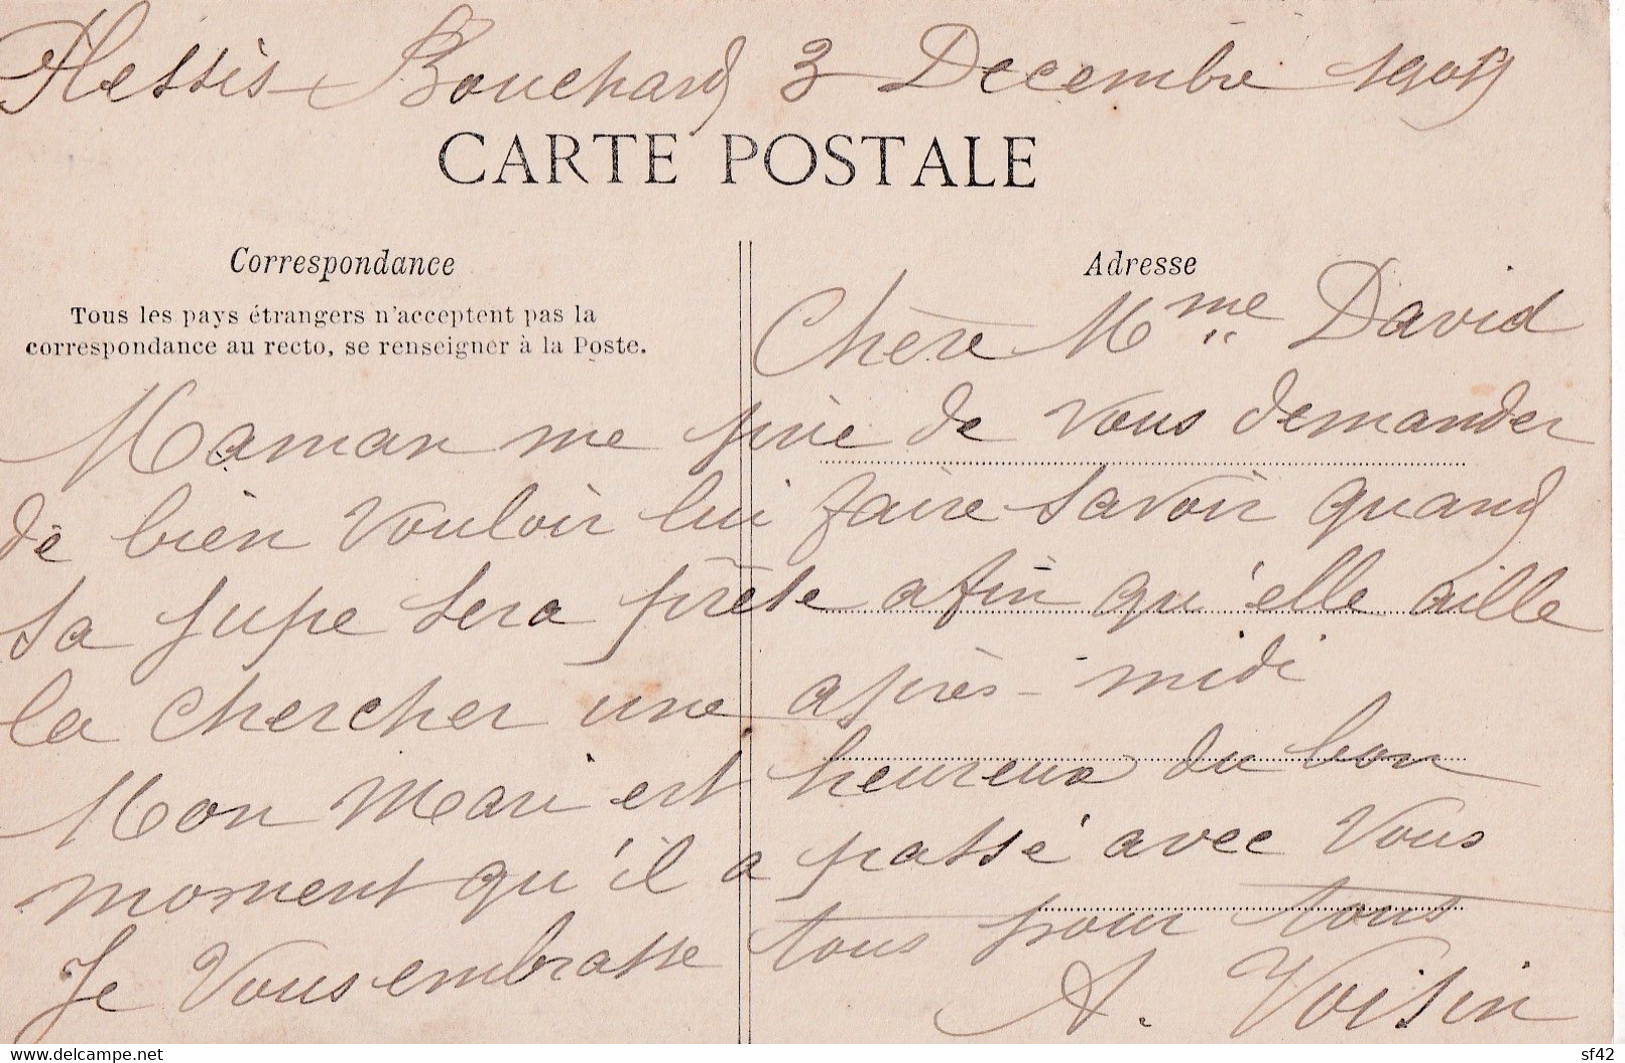 Plessis-Bouchard 3 Décembre
CARTE POSTALE
Correspondance
Adresse
Tous les pays étrangers n'acceptent pas la
correspondance au recto, se renseigner à la Poste.
Chère Mme David
Maman me prie de vous demander
de bien vouloir lui faire savoir quand
sa jupe sera prête afin qu'elle aille
la chercher une après-midi
Mon mari est heureux du bon
moment qu'il a passé avec vous
Je vous embrasse tous pour tous
A. Voisin
sf42